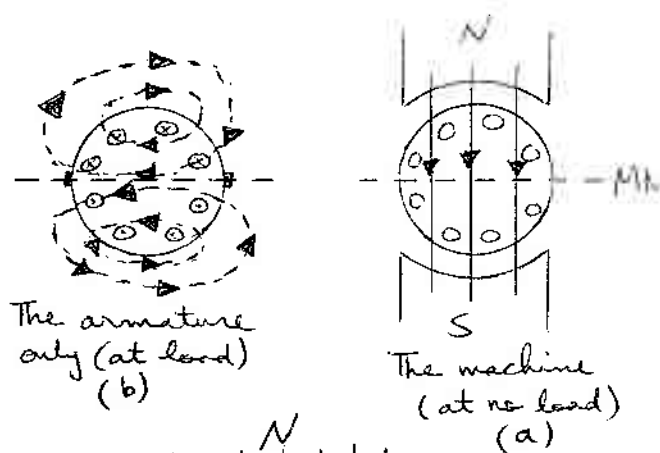 N
S
The armature
only (at load)
(b)
The machine
(at no load)
(a)
N